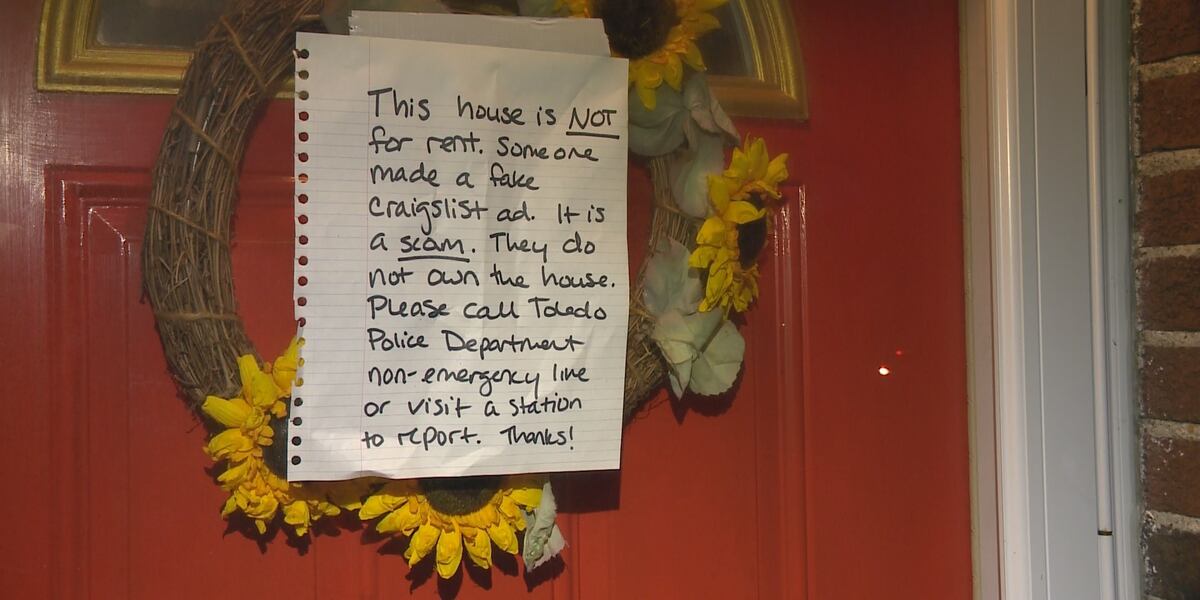 This house is NOT
for rent. Someone
made a fake
Craigslist ad. It is
a scam. They do
not own the house.
Please call Toledo
Police Department
non-emergency line
or visit a station
to report. Thanks!